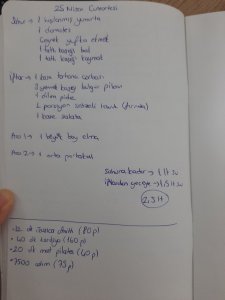 25 Nisan Cumartesi
Sahur: 1 haşlanmış yumurta
1 domates
Çeyrek yufka ekmek
1 tatlı kaşığı bal
1 tatlı kaşığı kaymak
İftar: 1 kase tarhana çorbası
3 yemek kaşığı bulgur pilavı
1 dilim pide
1 porsiyon sebzeli tavuk (fırında)
1 kase salata
Ara 1: 1 büyük boy elma
Ara 2: 1 orta portakal
Sahura kadar → 1 lt su
iftardan geceye → 1,5 lt su
2,5 lt
• 12 dk (80 p)
• 40 dk kardiyo (160 p)
• 20 dk mat pilates (40 p)
• 7500 adım (75 p)